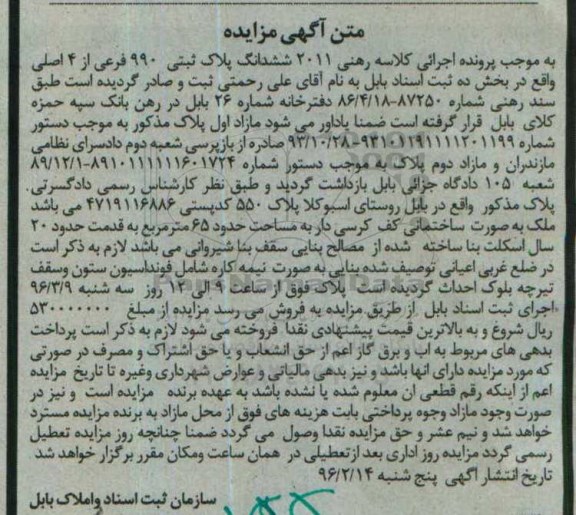 متن آگهی مزایده
به موجب پرونده اجرائی کلاسه رهنی ۲۰۱۱ ششدانگ پلاک ثبتی ۹۹۰ فرعی از ۴ اصلی
واقع در بخش ده ثبت اسناد بابل به نام آقای علی رحمتی ثبت و صادر گردیده است طبق
سند رهنی شماره ۸۷۲۵۰-۸۶/۴/۱۸ دفترخانه شماره ۲۶ بابل در رهن بانک سپه حمزه
کلای بابل قرار گرفته است ضمنا یاداور می شود مازاد اول پلاک مذکور به موجب دستور
شماره ۹۳۱۰۱۱۹۱۱۱۱۲۰۱۱۹۹-۹۳/۱۰/۲۸ صادره از بازپرسی شعبه دوم دادسرای نظامی
مازندران و مازاد دوم پلاک به موجب دستور شماره ۸۹۱۰۱۱۱۱۱۱۶۰۱۷۲۴-۸۹/۱۲/۱
شعبه ۱۰۵ دادگاه جزائی بابل بازداشت گردید و طبق نظر کارشناس رسمی دادگستری.
پلاک مذکور واقع در بابل روستای اسبوکلا پلاک ۵۵۰ کدپستی ۴۷۱۹۱۱۶۸۸۶ می باشد
ملک به صورت ساختمانی کف کرسی دار به مساحت حدود ۶۵ مترمربع به قدمت حدود ۲۰
سال اسکلت بنا ساخته شده از مصالح بنایی سقف بنا شیروانی می باشد لازم به ذکر است
در ضلع غربی اعیانی توصیف شده بنایی به صورت نیمه کاره شامل فونداسیون ستون وسقف
تیرچه بلوک احداث گردیده است پلاک فوق از ساعت ۹ الی ۱۲ روز سه شنبه ۹۶/۳/۹
اجرای ثبت اسناد بابل از طریق مزایده به فروش می رسد مزایده از مبلغ ۵۳۰۰۰۰۰۰۰
ریال شروع و به بالاترین قیمت پیشنهادی نقدا فروخته می شود لازم به ذکر است پرداخت
بدهی های مربوط به اب و برق گاز اعم از حق انشعاب و یا حق اشتراک و مصرف در صورتی
که مورد مزایده دارای انها باشد و نیز بدهی مالیاتی و عوارض شهرداری وغیره تا تاریخ مزایده
اعم از اینکه رقم قطعی ان معلوم شده یا نشده باشد به عهده برنده مزایده است و نیز در
صورت وجود مازاد وجوه پرداختی بابت هزینه های فوق از محل مازاد به برنده مزایده مسترد
خواهد شد و نیم عشر و حق مزایده نقدا وصول می گردد ضمنا چنانچه روز مزایده تعطیل
رسمی گردد مزایده روز اداری بعد ازتعطیلی در همان ساعت ومکان مقرر برگزار خواهد شد
تاریخ انتشار آگهی پنج شنبه ۹۶/۲/۱۴
سازمان ثبت اسناد واملاک بابل